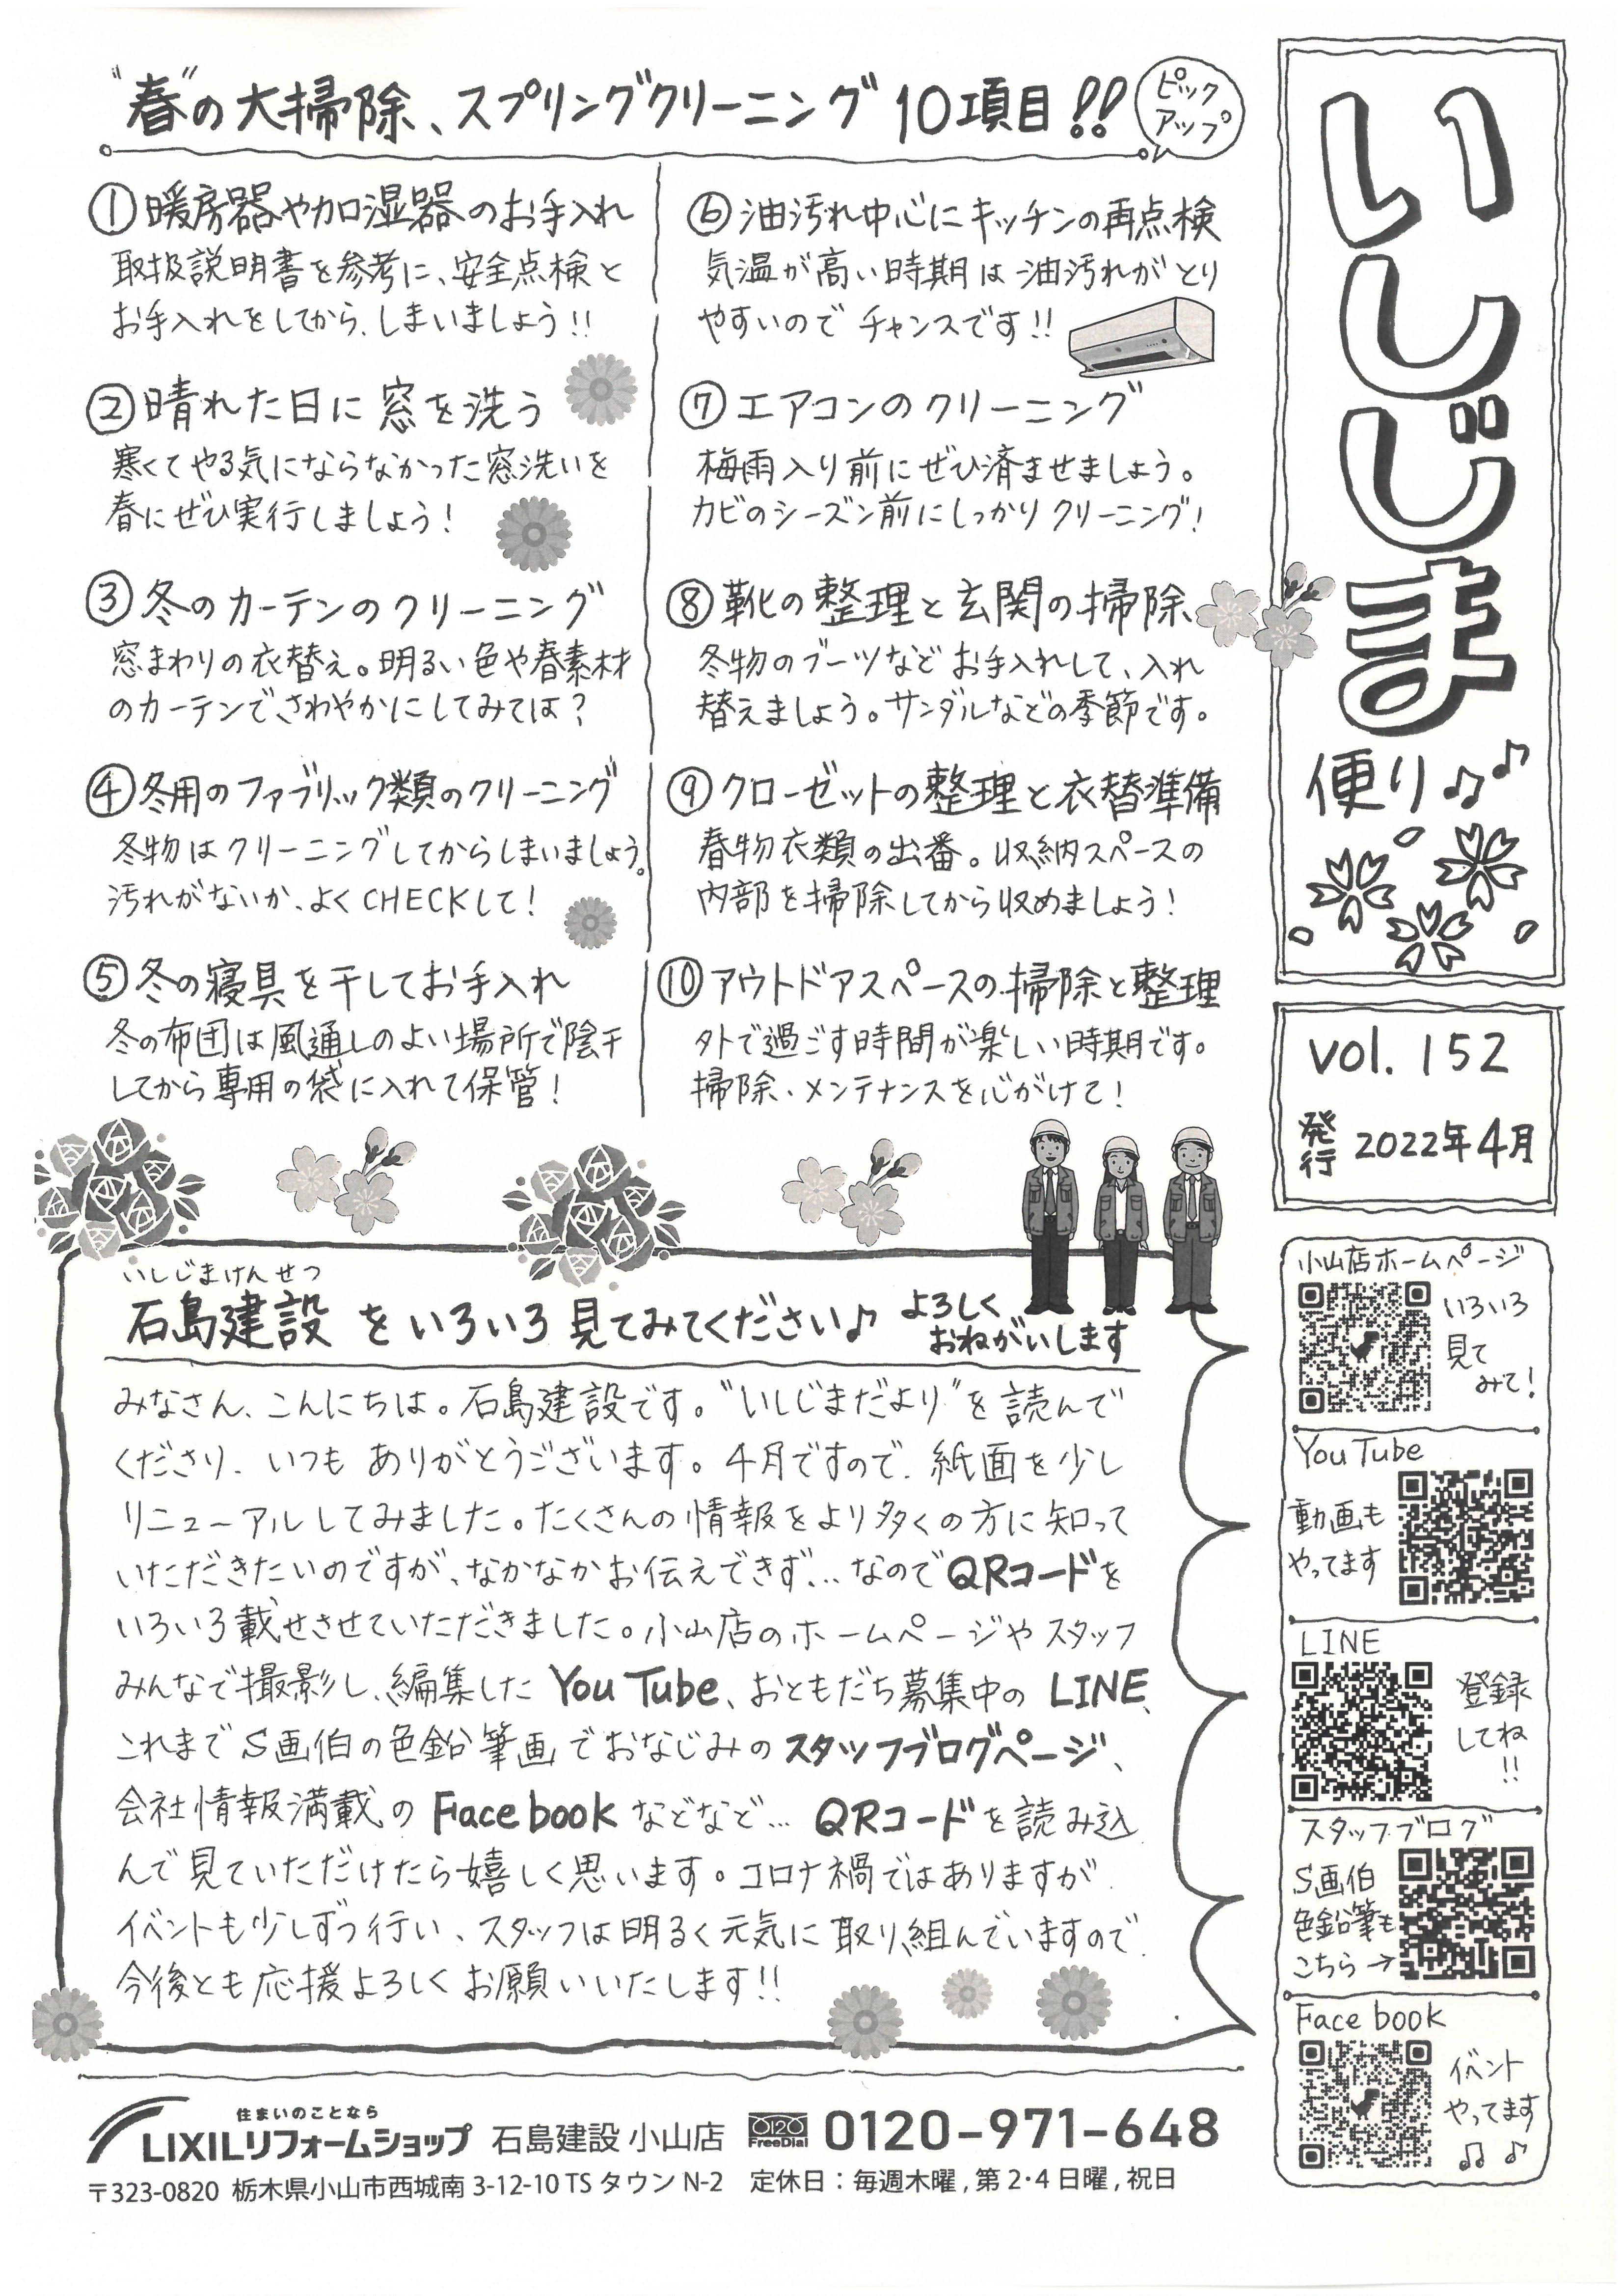 いしじま
便り♪♪
vol. 152
発行 2022年4月
"春"の大掃除、スプリングクリーニング 10項目!!
ピック
アップ
①暖房器や加湿器のお手入れ
取扱説明書を参考に、安全点検と
お手入れをしてから、しまいましょう!!
②晴れた日に窓を洗う
寒くてやる気にならなかった窓洗いを
春にぜひ実行しましょう!
③冬のカーテンのクリーニング
窓まわりの衣替え。明るい色や春素材
のカーテンでさわやかにしてみては?
④冬用のファブリック類のクリーニング
冬物はクリーニングしてからしまいましょう。
汚れがないか、よくCHECKして!
⑤冬の寝具を干してお手入れ
冬の布団は風通しのよい場所で陰干
してから専用の袋に入れて保管!
⑥油汚れ中心にキッチンの再点検
気温が高い時期は油汚れがとり
やすいのでチャンスです!!
⑦エアコンのクリーニング
梅雨入り前にぜひ済ませましょう。
カビのシーズン前にしっかりクリーニング!
⑧靴の整理と玄関の掃除
冬物のブーツなどお手入れして、入れ
替えましょう。サンダルなどの季節です。
⑨クローゼットの整理と衣替準備
春物衣類の出番。収納スペースの
内部を掃除してから収めましょう!
⑩アウトドアスペースの掃除と整理
外で過ごす時間が楽しい時期です。
掃除、メンテナンスを心がけて!
いしじまけんせつ
石島建設をいろいろ見てみてください♪
よろしく
おねがいします
みなさん、こんにちは。石島建設です。"いしじまだより"を読んで
くださり、いつもありがとうございます。4月ですので、紙面を少し
リニューアルしてみました。たくさんの情報をより多くの方に知って
いただきたいのですが、なかなかお伝えできず、…なのでQRコードを
いろいろ載せさせていただきました。小山店のホームページやスタッフ
みんなで撮影し、編集したYouTube、おともだち募集中のLINE、
これまでS画伯の色鉛筆画でおなじみのスタッフブログページ、
会社情報満載のFacebookなどなど…QRコードを読み込
んで見ていただけたら嬉しく思います。コロナ禍ではありますが、
イベントも少しずつ行い、スタッフは明るく元気に取り組んでいますので、
今後とも応援よろしくお願いいたします!!
小山店ホームページ
いろいろ
見て
みて!
YouTube
動画も
やってます
LINE
登録
してね
!!
スタッフブログ
S画伯
色鉛筆も
こちら→
Facebook
イベント
やってます
♫ ♪
住まいのことなら
LIXILリフォームショップ 石島建設 小山店 0120 FreeDial 0120-971-648
〒323-0820 栃木県小山市西城南3-12-10 TSタウンN-2 定休日:毎週木曜,第2・4日曜,祝日